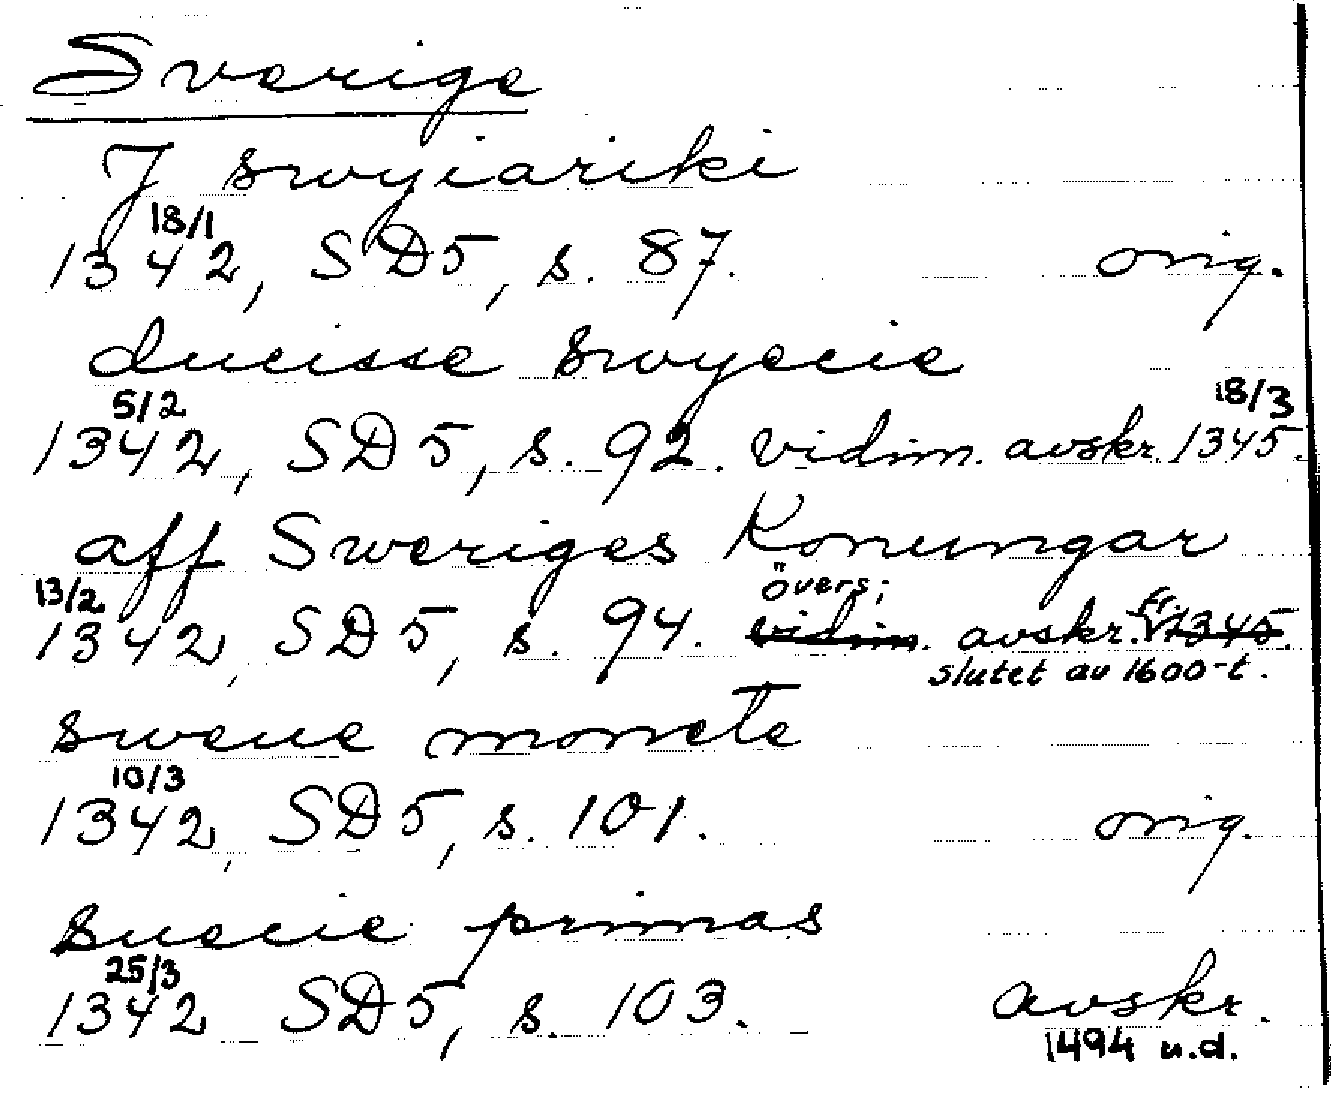 Sverige
J swyiariki
18/1
1342, SD5, s. 87. orig.
ducisse swyecie
5/2 18/3
1342, SD5, s. 92. vidim. avskr. 1345.
aff Sweriges Konungar
13/2 övers;
1342, SD5, s. 94. vidim. avskr. fr. 1345.
slutet av 1600-t.
swecie monete
10/3
1342, SD5, s. 101. orig.
suecie primas
25/3
1342 SD5, s. 103. avskr.
1494 u.d.